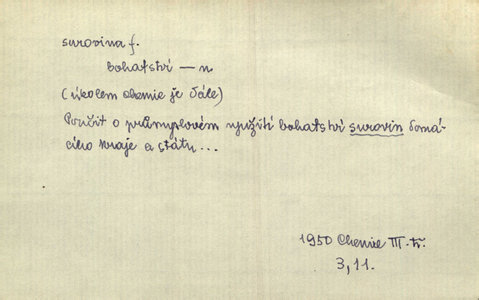 surovina f.
bohatství — n
(úkolem chemie je dále)
Poučit o průmyslovém využití bohatství surovin domá-
cího kraje a státu...
1950 Chemie III. tř.
3, 11.